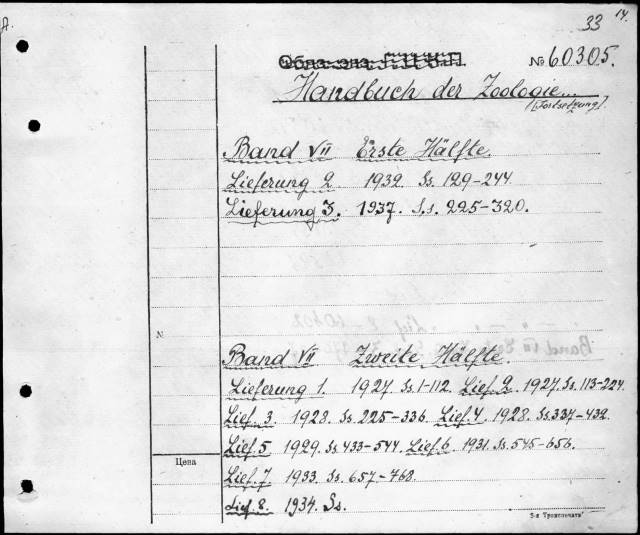 33 14.
№ 60305.
Handbuch der Zoologie...
(Fortsetzung).
Band VII Erste Hälfte.
Lieferung 2 1932. Ss. 129-244.
Lieferung 3. 1937. S.s. 225-320.
№
Band VII Zweite Hälfte.
Lieferung 1. 1927. Ss. 1-112. Lief. 2. 1927. Ss. 113-224.
Lief. 3. 1928. Ss. 225-336. Lief. 4. 1928. Ss 337-432.
Lief. 5 1929. Ss. 433-544. Lief. 6. 1931. Ss. 545-656.
Цена
Lief. 7 1933. Ss. 657-768.
Lief. 8. 1934. Ss.
3-я Транспечати